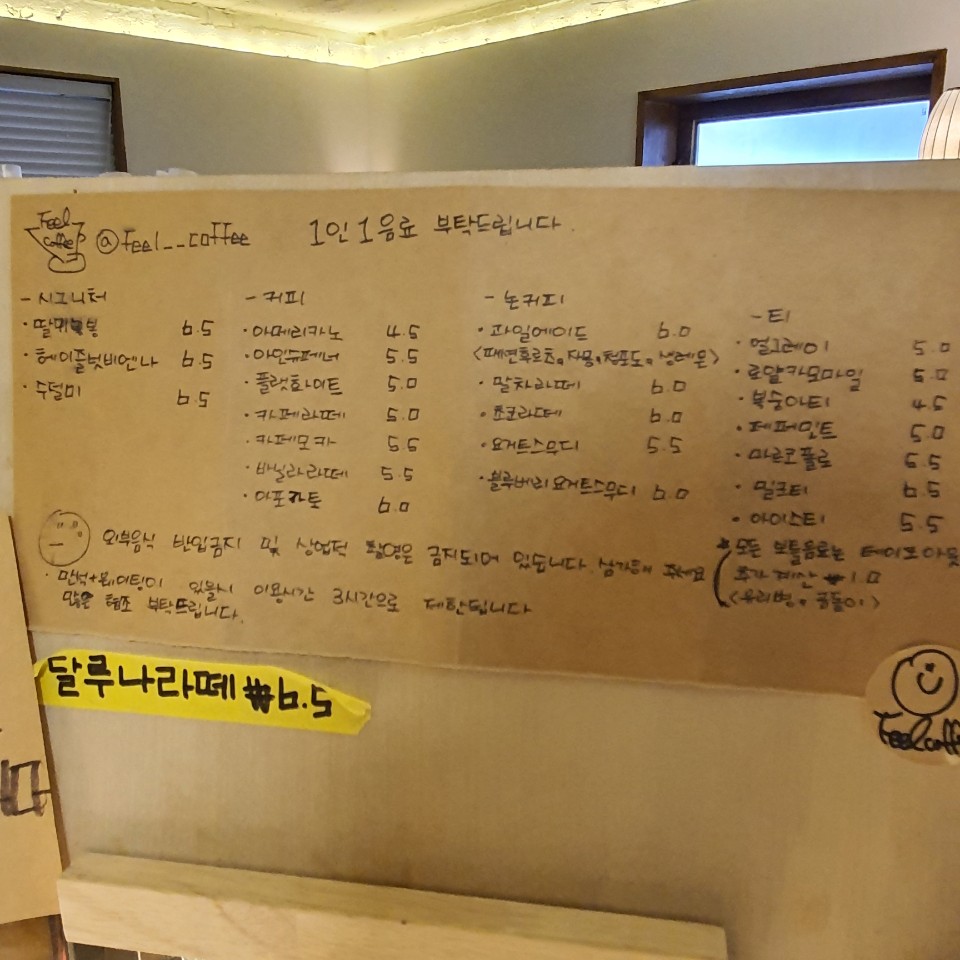 Feel
Coffee
@feel__coffee
1인 1음료 부탁드립니다.
- 시그니처
· 6.5
· 헤이즐넛비엔나 6.5
· 수덜미 6.5
- 커피
· 아메리카노 4.5
· 아인슈페너 5.5
· 플랫화이트 5.0
· 카페라떼 5.0
· 카페모카 5.5
· 바닐라라떼 5.5
· 아포카토 6.0
- 논커피
· 과일에이드 6.0
<패션후르츠, 자몽, 청포도, 생레몬>
· 말차라떼 6.0
· 초코라떼 6.0
· 요거트스무디 5.5
· 블루베리요거트스무디 6.0
- 티
· 얼그레이 5.0
· 로얄카모마일 5.0
· 복숭아티 4.5
· 페퍼민트 5.0
· 마르코폴로 5.5
· 밀크티 6.5
· 아이스티 5.5
* 모든 보틀음료는 테이크아웃
추가 계산 ₩1.0
<유리병, 공돌이>
외부음식 반입금지 및 상업적 촬영은 금지되어 있습니다. 삼가해 주세요
· 만석+웨이팅이 있을시 이용시간 3시간으로 제한됩니다
많은 협조 부탁드립니다.
달루나라떼 ₩6.5
Feel coffe